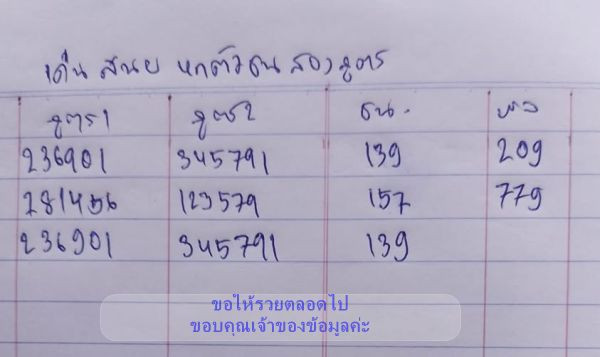 เดิน สนย หกตัวชน สองสูตร
สูตร1 สูตร2 ชน. ผล
236901 345791 139 209
281456 123579 157 779
236901 345791 139
ขอให้รวยตลอดไป
ขอบคุณเจ้าของข้อมูลค่ะ